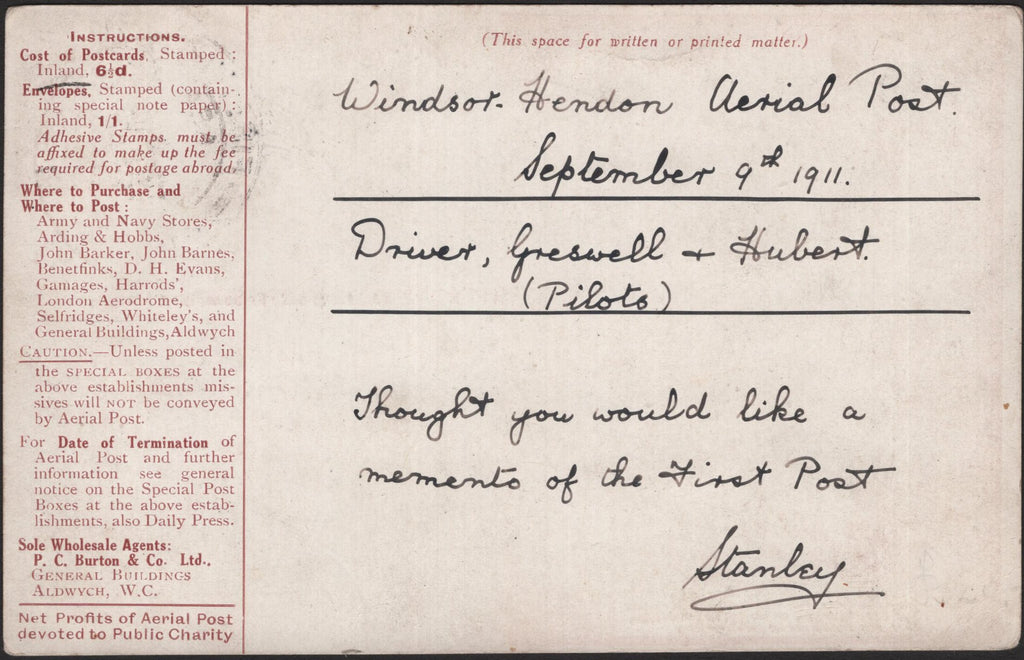 INSTRUCTIONS.
Cost of Postcards, Stamped :
Inland, 6½d.
Envelopes, Stamped (contain-
ing special note paper) :
Inland, 1/1.
Adhesive Stamps must be
affixed to make up the fee
required for postage abroad.
Where to Purchase and
Where to Post :
Army and Navy Stores,
Arding & Hobbs,
John Barker, John Barnes,
Benetfinks, D. H. Evans,
Gamages, Harrods',
London Aerodrome,
Selfridges, Whiteley's, and
General Buildings, Aldwych
CAUTION.—Unless posted in
the SPECIAL BOXES at the
above establishments mis-
sives will NOT be conveyed
by Aerial Post.
For Date of Termination of
Aerial Post and further
information see general
notice on the Special Post
Boxes at the above estab-
lishments, also Daily Press.
Sole Wholesale Agents:
P. C. Burton & Co. Ltd.,
GENERAL BUILDINGS
ALDWYCH, W.C.
Net Profits of Aerial Post
devoted to Public Charity
(This space for written or printed matter.)
Windsor-Hendon Aerial Post.
September 9th 1911.
Driver, Greswell + Hubert.
(Pilots)
Thought you would like a
memento of the First Post
Stanley